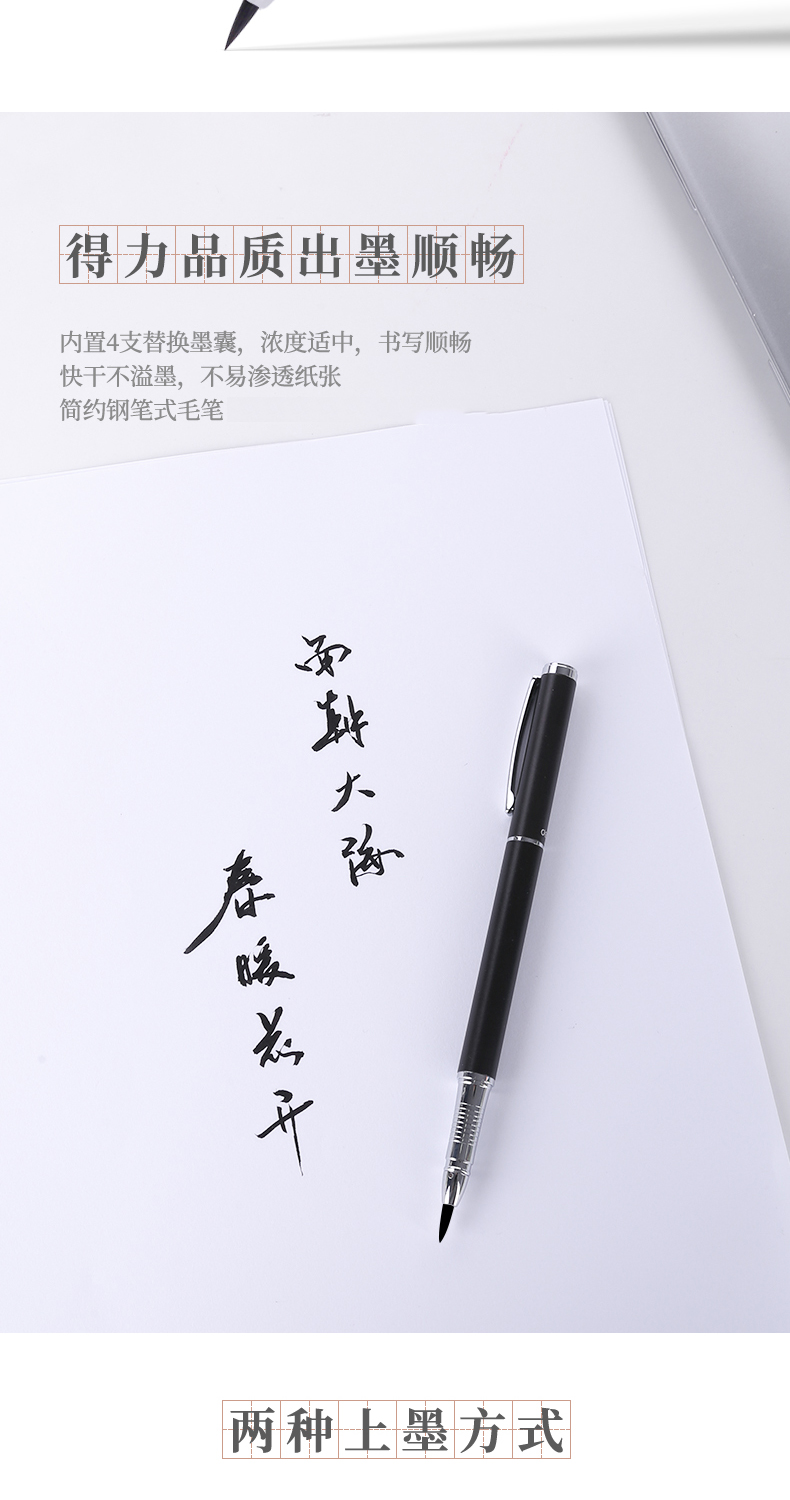 得力品质出墨顺畅
内置4支替换墨囊，浓度适中，书写顺畅
快干不溢墨，不易渗透纸张
简约钢笔式毛笔
面朝大海
春暖花开
两种上墨方式